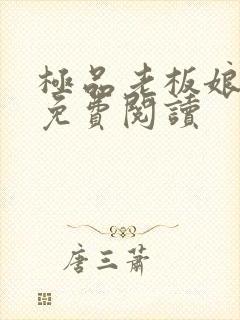 極品老板娘
免費閱讀
唐三蕭